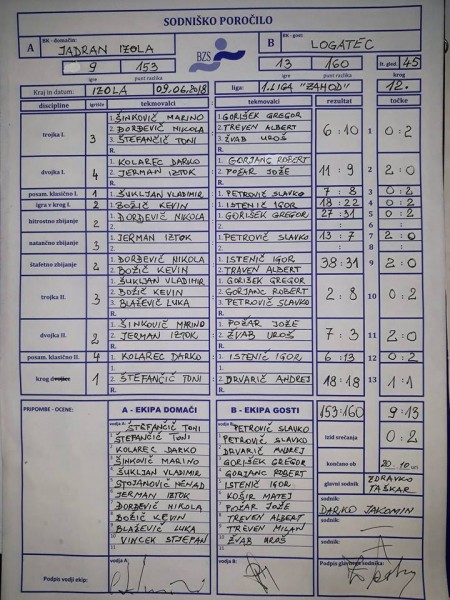 SODNIŠKO POROČILO
A BK - domačin: JADRAN IZOLA BZS B BK - gost: LOGATEC
9 153 13 160 št. gled. 45
igre punt razlika igre punt razlika krog
Kraj in datum: IZOLA 09.06.2018 liga: 1. LIGA "ZAHOD" 12.
discipline igrišče tekmovalci tekmovalci rezultat točke
trojka I. 3 1. ŠINKOVIČ MARINO 1. GORIŠEK GREGOR 6:10 1 0:2
2. DORĐEVIČ NIKOLA 2. TREVEN ALBERT
3. ŠTEFANČIČ TONI 3. ŽVAB UROŠ
R. R.
dvojka I. 4 1. KOLAREC DARKO 1. GORJANC ROBERT 11:9 2 2:0
2. JERMAN IZTOK 2. POŽAR JOŽE
R. R.
posam. klasično I. 1 1. ŠUKLJAN VLADIMIR 1. PETROVIČ SLAVKO 7:8 3 0:2
igra v krog I. 2 1. BOŽIČ KEVIN 1. ISTENIČ IGOR 18:22 4 0:2
hitrostno zbijanje 2 1. DORĐEVIČ NIKOLA 1. GORIŠEK GREGOR 27:31 5 0:2
natančno zbijanje 3 1. JERMAN IZTOK 1. PETROVIČ SLAVKO 13:7 7 2:0
štafetno zbijanje 2 1. DORĐEVIČ NIKOLA 1. ISTENIČ IGOR 38:31 9 2:0
2. BOŽIČ KEVIN 2. TRAVEN ALBERT
trojka II. 3 1. ŠUKLJAN VLADIMIR 1. GORIŠEK GREGOR 2:8 10 0:2
2. BOŽIČ KEVIN 2. GORJANC ROBERT
3. BLAŽEVIČ LUKA 3. PETROVIČ SLAVKO
R. R.
dvojka II. 2 1. ŠINKOVIČ MARINO 1. POŽAR JOŽE 7:3 11 2:0
2. JERMAN IZTOK 2. ŽVAB UROŠ
R. R.
posam. klasično II. 4 1. KOLAREC DARKO 1. ISTENIČ IGOR 6:13 12 0:2
krog 1 2. ŠTEFANČIČ TONI 2. DRVARIČ ANDREJ 18:18 13 1:1
PRIPOMBE - OCENE: A - EKIPA DOMAČI B - EKIPA GOSTI 153:160 9:13
vodja A: ŠTEFANČIČ TONI vodja B: PETROVIČ SLAVKO
1 ŠTEFANČIČ TONI 1 PETROVIČ SLAVKO izid srečanja 0:2
2 KOLAREC DARKO 2 DRVARIČ ANDREJ
3 ŠINKOVIČ MARINO 3 GORIŠEK GREGOR
4 ŠUKLJAN VLADIMIR 4 GORJANC ROBERT končano ob 20.10 uri
5 STOJANOVIČ NENAD 5 ISTENIČ IGOR glavni sodnik: ZDRAVKO TAŠKAR
6 JERMAN IZTOK 6 KOŠIR MATEJ sodnik:
7 DORĐEVIČ NIKOLA 7 POŽAR JOŽE DARKO JAKOMIN
8 BOŽIČ KEVIN 8 TREVEN ALBERT sodnik:
9 BLAŽEVIČ LUKA 9 TREVEN MILAN
10 VINCEK STJEPAN 10 ŽVAB UROŠ sodnik:
11 11
Podpis vodij ekip: vodja A: vodja B: Podpis glavnega sodnika: